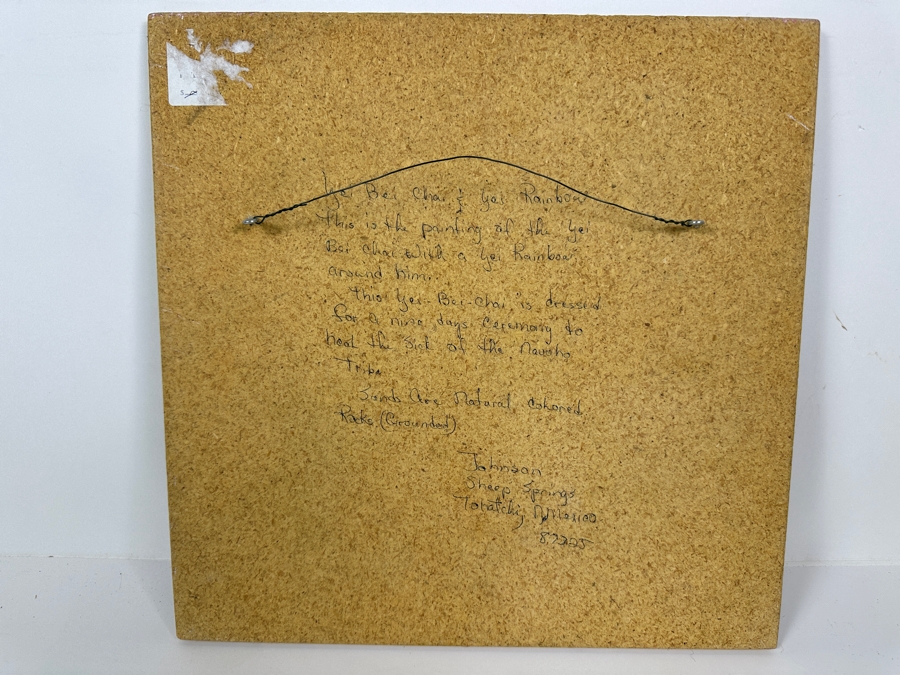 Yei Bei Chai & Yei Rainbow
This is the painting of the Yei
Bei Chai with a Yei Rainbow
around him.
This Yei-Bei-Chai is dressed
for a nine days Ceremony to
heal the Sick of the Navaho
Tribe
Sands Are Natural, Colored
Rocks (Grounded)
Johnson
Sheep Springs
Tohatchi, N Mexico
87325